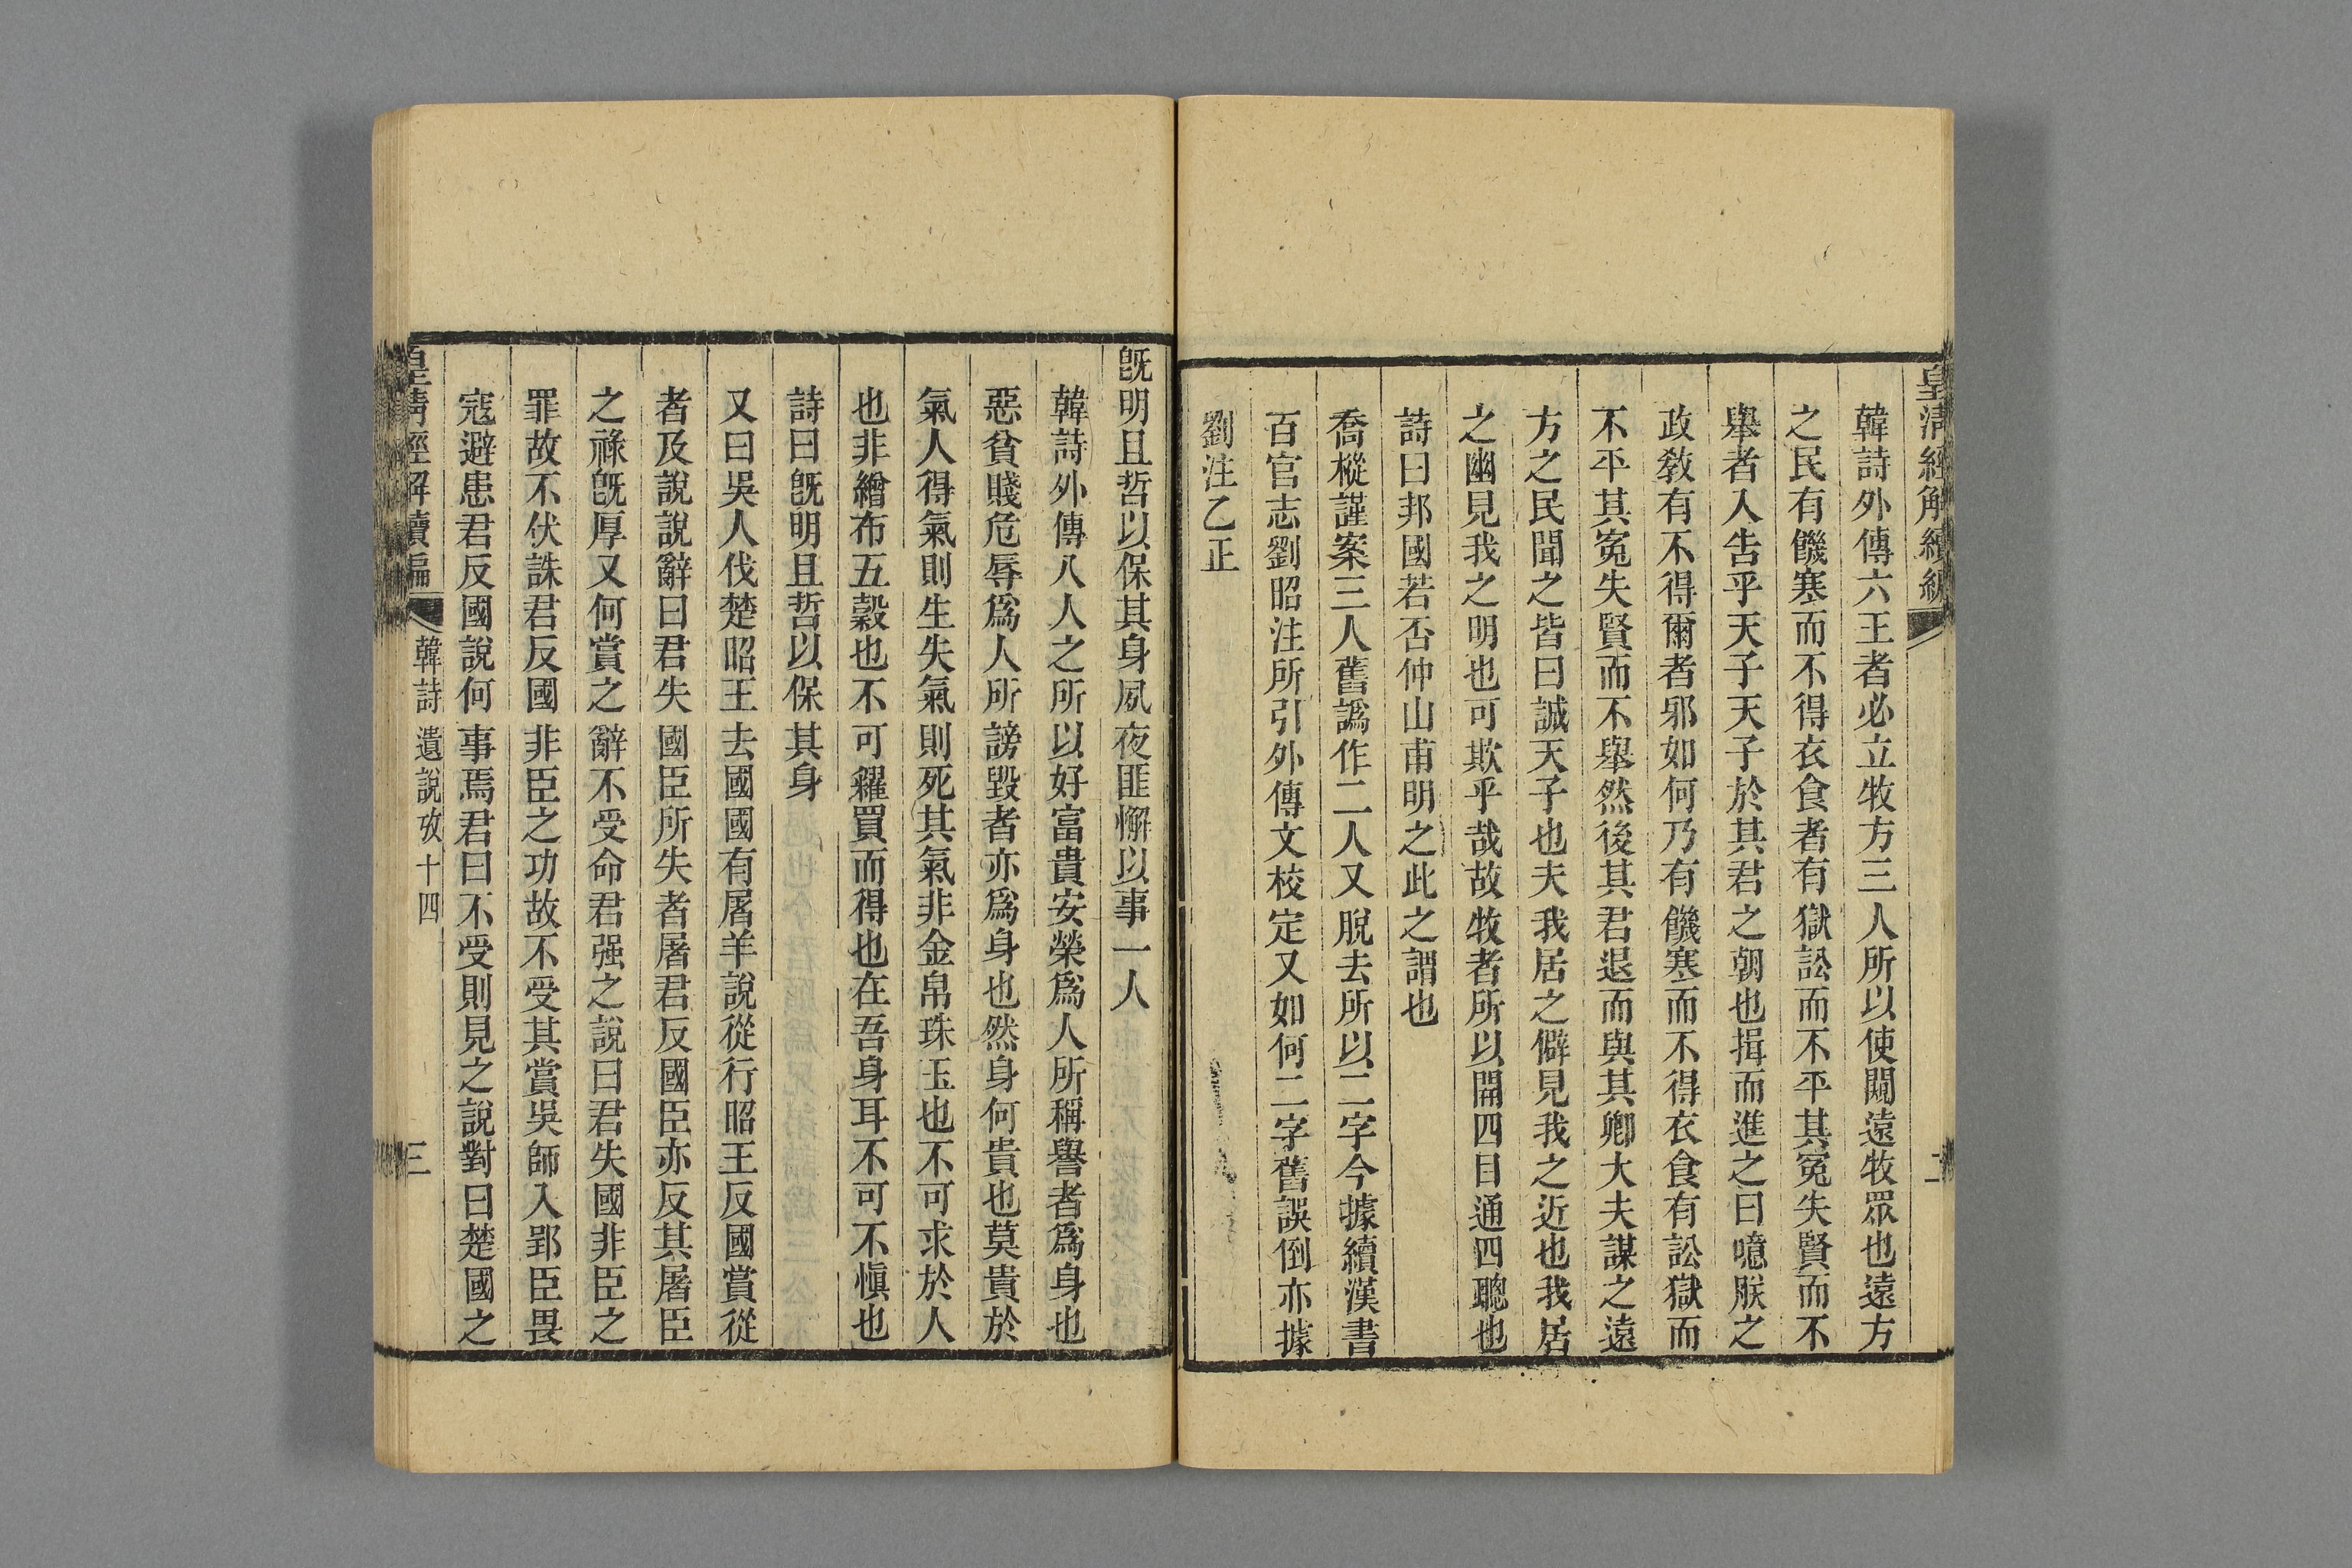 皇清經解續編
韓詩外傳六王者必立牧方三人所以使闚遠牧眾也遠方
之民有饑寒而不得衣食者有獄訟而不平其冤失賢而不
舉者入告乎天子天子於其君之朝也揖而進之曰噫朕之
政敎有不得爾者邪如何乃有饑寒而不得衣食有訟獄而
不平其冤失賢而不舉然後其君退而與其卿大夫謀之遠
方之民聞之皆曰誠天子也夫我居之僻見我之近也我居
之幽見我之明也可欺乎哉故牧者所以開四目通四聰也
詩曰邦國若否仲山甫明之此之謂也
喬樅謹案三人舊譌作二人又脫去所以二字今據續漢書
百官志劉昭注所引外傳文校定又如何二字舊誤倒亦據
劉注乙正
旣明且哲以保其身夙夜匪懈以事一人
韓詩外傳八人之所以好富貴安榮爲人所稱譽者爲身也
惡貧賤危辱爲人所謗毀者亦爲身也然身何貴也莫貴於
氣人得氣則生失氣則死其氣非金帛珠玉也不可求於人
也非繒布五穀也不可糴買而得也在吾身耳不可不愼也
詩曰旣明且哲以保其身
又曰吳人伐楚昭王去國國有屠羊說從行昭王反國賞從
者及說說辭曰君失國臣所失者屠君反國臣亦反其屠臣
之祿旣厚又何賞之辭不受命君强之說曰君失國非臣之
罪故不伏誅君反國非臣之功故不受其賞吳師入郢臣畏
寇避患君反國說何事焉君曰不受則見之說對曰楚國之
皇清經解續編 韓詩遺說攷十四 三